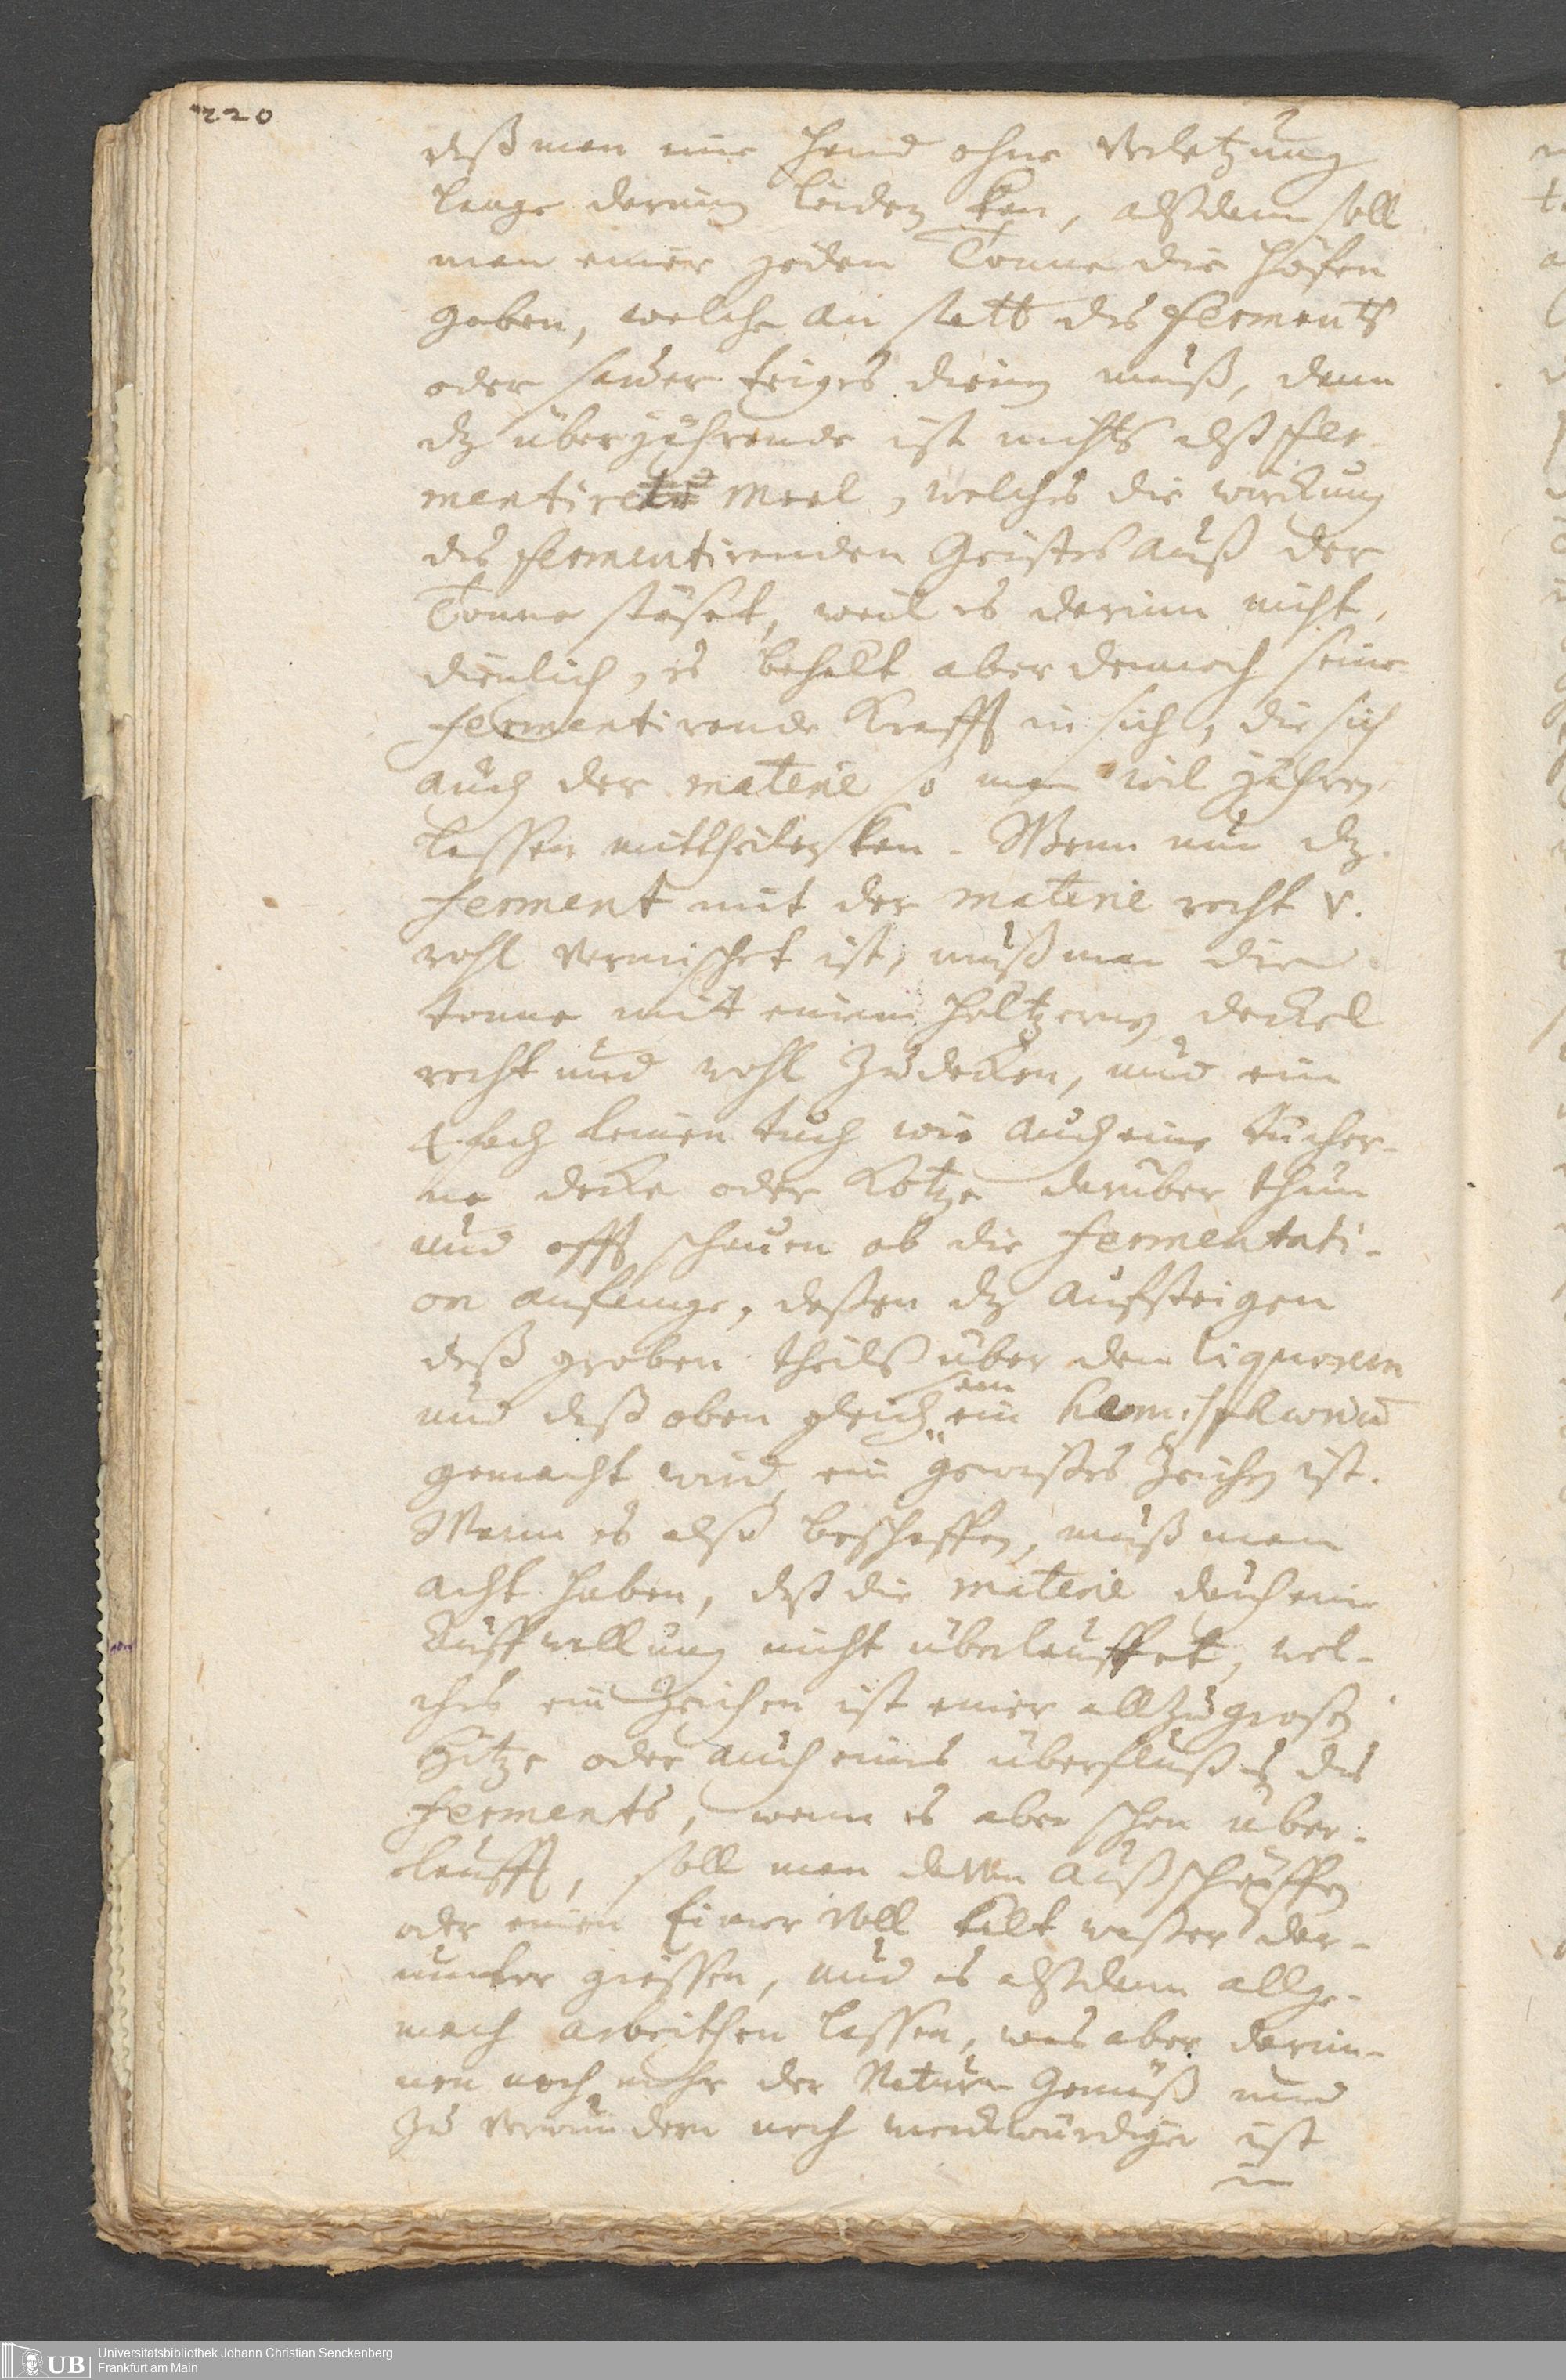 220
daß man eine Hand ohne Verletzung
lange darinn leiden kan, alßdann soll
man einer jeden Tonne die Häfen
geben, welche an statt des ferments
oder sauer teiges dienen muß, dann
dz überjährende ist nichts alß fer-
mentirete Meel, welches die wirckung
des fermentirenden Geistes auß der
Tonne stöset, weil es darinn nicht
dienlich, es behalt aber dennoch seine
fermentirende Krafft in sich, die sich
auch der materie so man wil jähren
lassen mittheilen kan. Wenn nun dz
ferment mit der materie recht v.
wohl vermischet ist, muß man die
tonne mit einem holtzernen deckel
recht und wohl zudecken, und ein
4 fach leinen tuch wie auch eine tücher-
ne decke oder Kotze darüber thun
und offt schauen ob die fermentati-
on anfange, dessen dz aufsteigen
deß groben theils über den liquorem
und daß oben gleichsam ein
gemacht wird, ein gewisses Zeichen ist.
Wann es also beschaffen, muß man
acht haben, daß die materie durch eine
Auffwellung nicht überlauffet, wel-
ches ein Zeichen ist einer allzugrossen
Hitze oder auch eines überflusses des
ferments, wenn es aber schon über-
laufft, soll man davon außschöpffen
oder einen Eimer voll kalt wasser dar-
unter giessen, und es alßdann allge-
mach arbeithen lassen, was aber darin-
nen noch mehr der Naturn Gemäß und
zu verwundern noch merckwürdiger ist
in
Universitätsbibliothek Johann Christian Senckenberg
Frankfurt am Main
UB